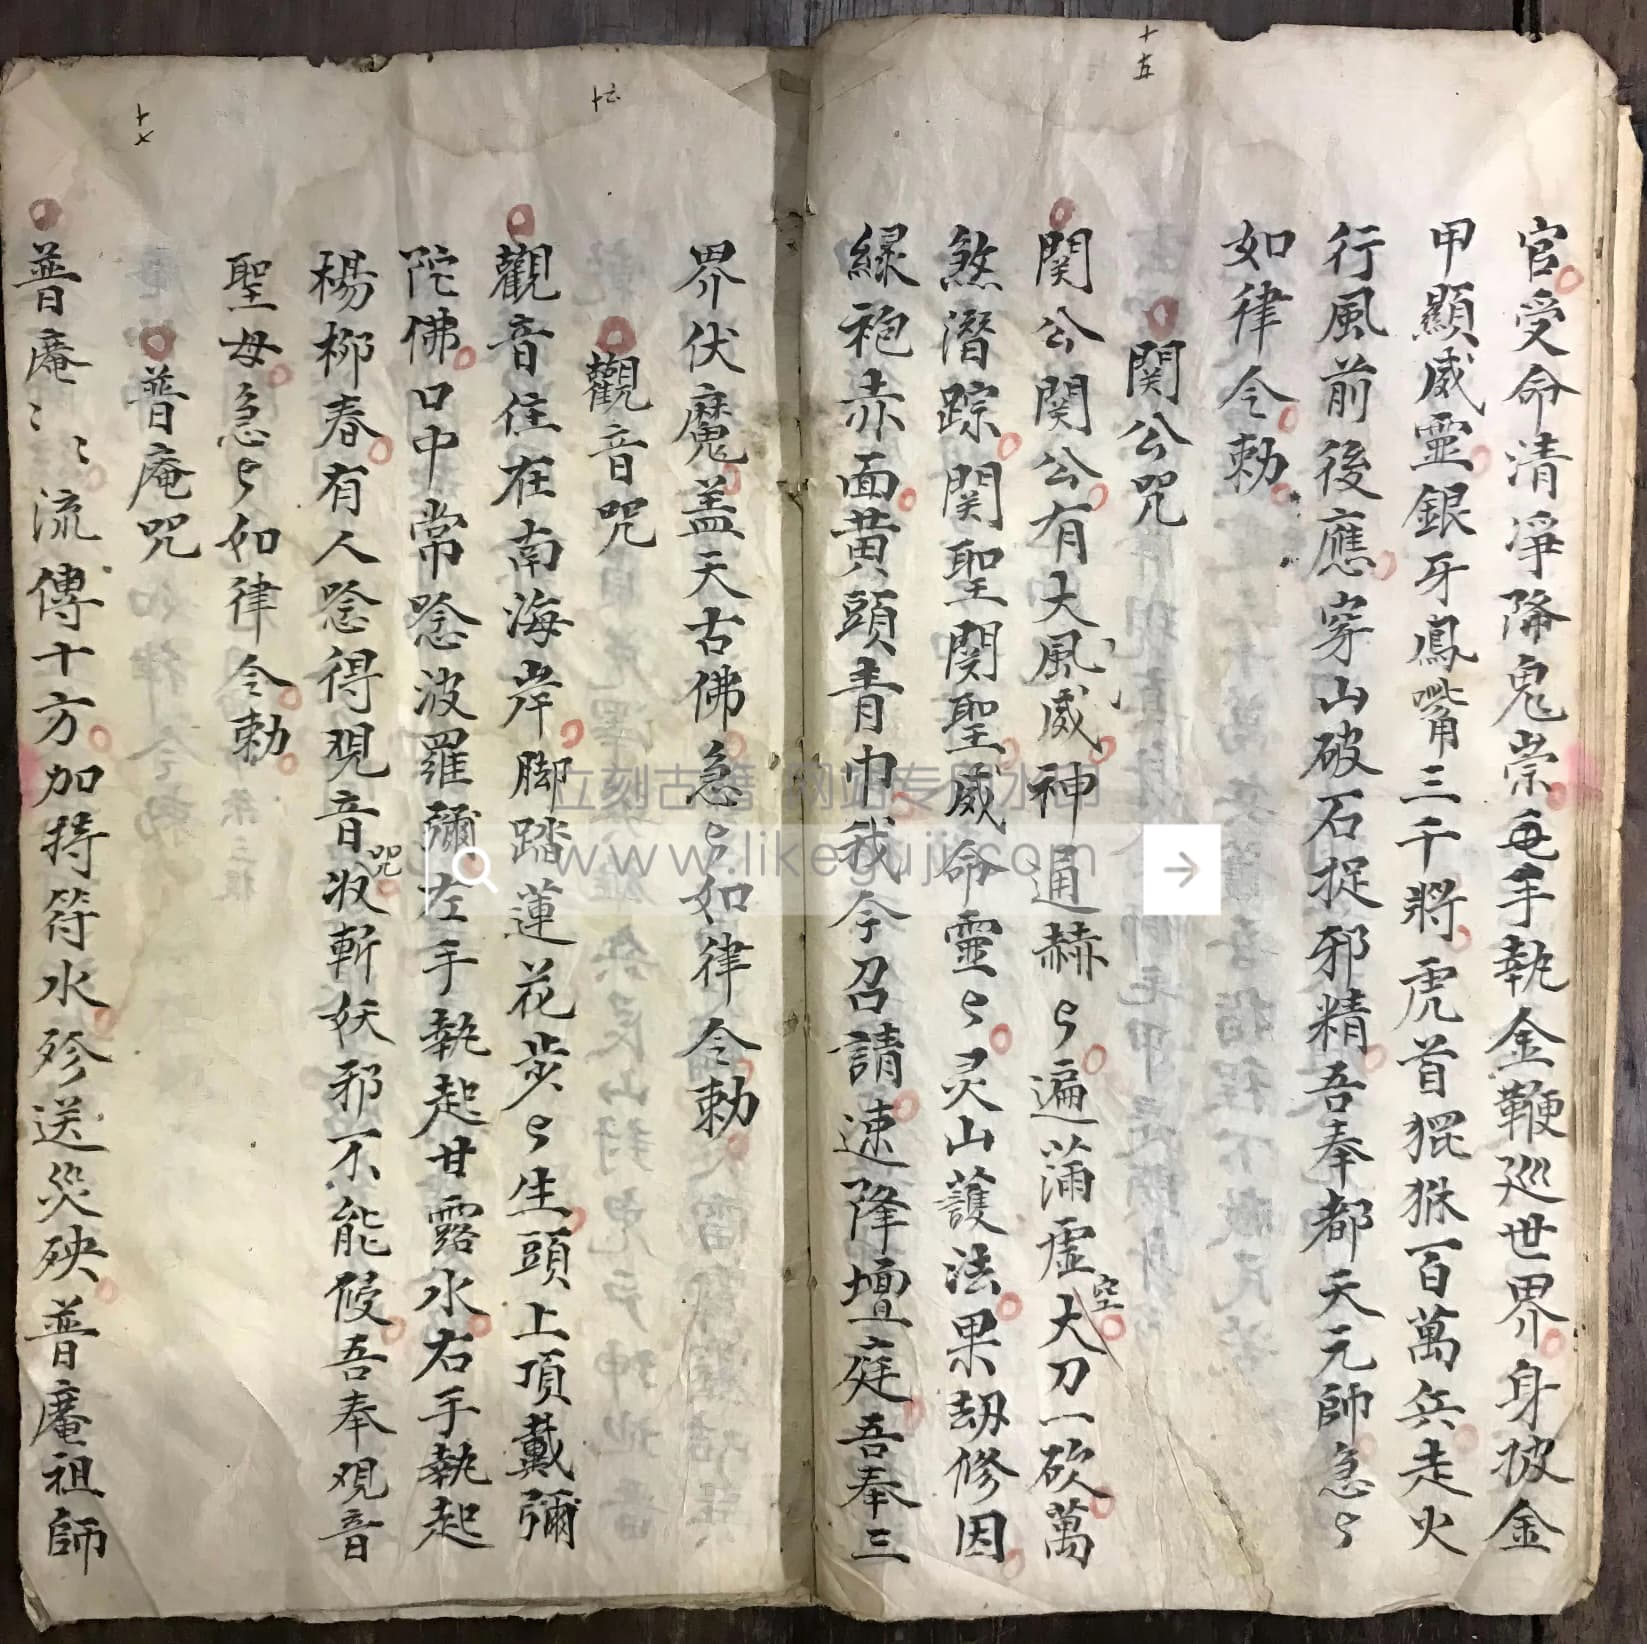 十五
官受命清淨降鬼祟每手執金鞭巡世界身披金
甲顯威靈銀牙鳳嘴三千將虎首猑猴百萬兵走火
行風前後應穿山破石捉邪精吾奉都天元帥急〻
如律令勅
関公咒
関公関公有大風威神通赫〻遍滿虛空大刀一砍萬
煞潛踪関聖関聖威命靈〻灵山護法果劫修因
緑袍赤面黄頭青巾我今召請速降壇庭吾奉三
十六
界伏魔盖天古佛急〻如律令勅
觀音咒
觀音住在南海岸脚踏蓮花步〻生頭上頂戴彌
陀佛口中常唸波羅彌左手執起甘露水右手執起
楊柳春有人唸得覌音咒收斬妖邪不能侵吾奉覌音
聖母急〻如律令勅
十七
普庵咒
普庵〻〻流傳十方加持符水殄送災殃普庵祖師
立刻古籍 网站专用水印
www.likeguji.com